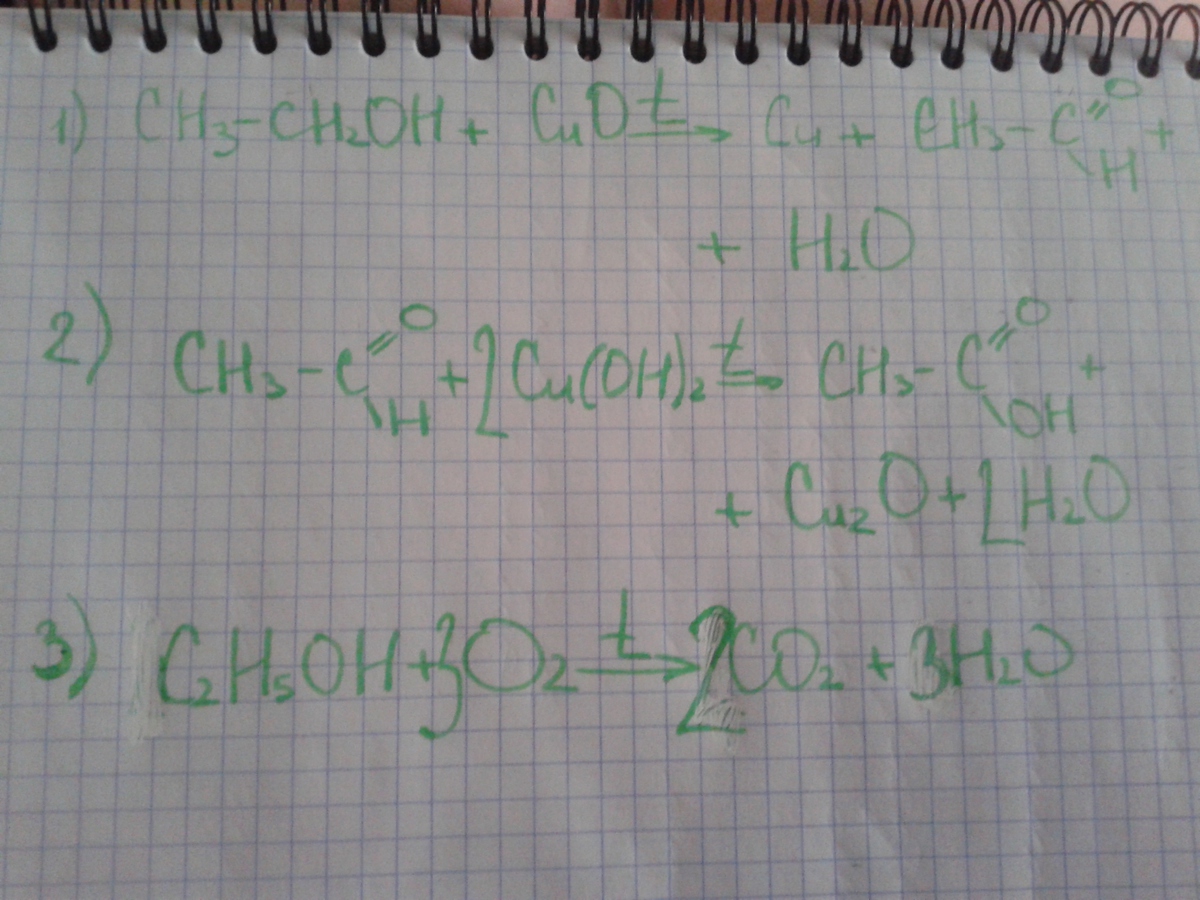 1) CH₃-CH₂OH + CuO t→ Cu + CH₃-C=O\H +
+ H₂O
2) CH₃-C=O\H + 2Cu(OH)₂ t→ CH₃-C=O\OH +
+ Cu₂O + 2H₂O
3) C₂H₅OH + 3O₂ t→ 2CO₂ + 3H₂O